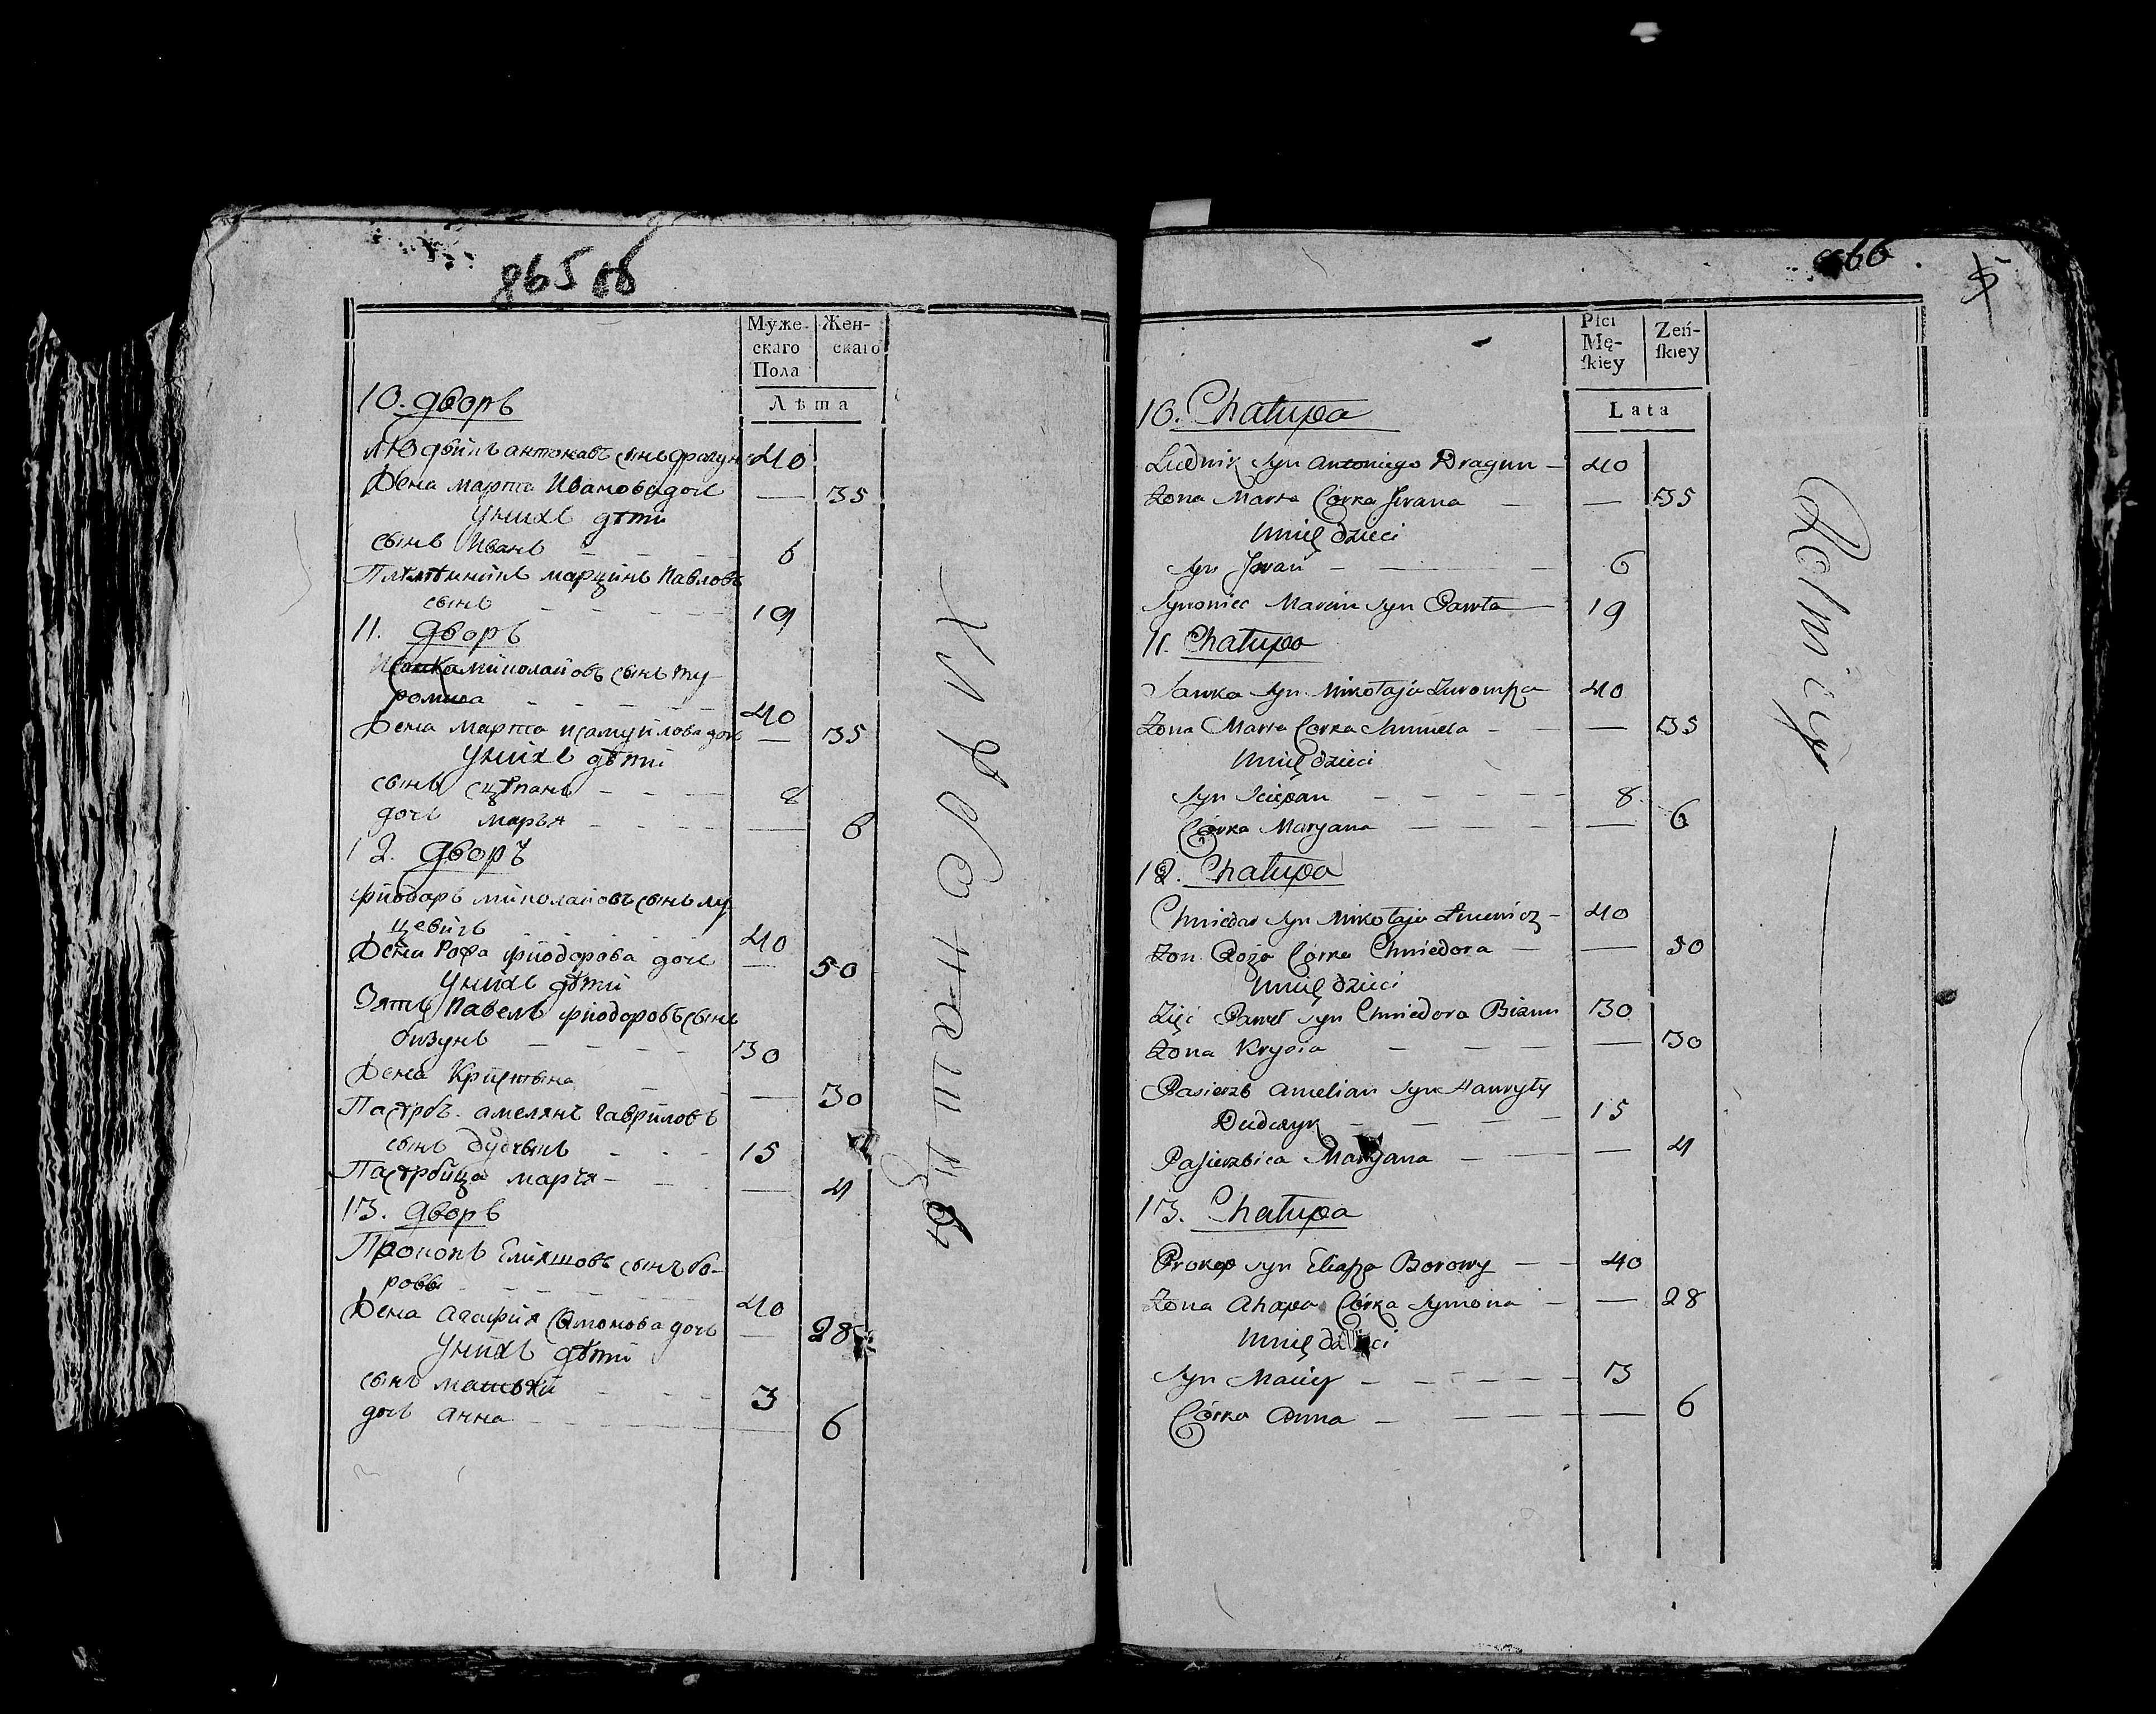 865 об
Муже-
скаго
Пола
Жен-
скаго
Лѣта
10. дворъ
Людвикъ антоновъ сынъ драгунъ 40
Жена марта Иванова дочь — 35
У нихъ дѣти
сынъ Иванъ 6
Племѣнникъ марцинъ Павловъ
сынъ 19
11. дворъ
миколаиовъ сынъ ту-
ромша 40
Жена марта самуйлова дочь — 35
У нихъ дѣти
сынъ сцѣпанъ 8
дочь марья — 6
12. дворъ
фиодаръ миколаиовъ сынъ лу-
цевичъ 40
Жена Роза фиодорова дочь — 50
У нихъ дѣти
Зять Павелъ фиодоровъ сынъ
бизунъ 30
Жена Кристына — 30
Пасербъ амелянъ гавриловъ
сынъ дудчыкъ 15
Пасербица марья — 4
13. дворъ
Прокопъ Елияшовъ сынъ бо-
ровы 40
Жена агафия Самонова дочь — 28
У нихъ дѣти
сынъ матѣй 3
дочь анна — 6
866
5
Płci
Mę-
skiey
Żeń-
skiey
Lata
10. Chałupa
Ludwik syn Antoniego Dragun — 40
Żona Marta Córka Jwana — 35
U nich dzieci
syn Jwan — 6
Synowiec Marcin syn Pawła — 19
11. Chałupa
Jawka syn Mikołaja 40
Żona Marta Córka — 35
U nich dzieci
Syn Sciepan — 8
Córka Maryana — 6
12. Chałupa
Chwiedar syn Mikołaja 40
Żon Roża Córka Chwiedora — 50
U nich dzieci
Zięć Paweł syn Chwiedora Bizun 30
Żona Krysia — 30
Pasierzb Amelian syn Hawryły
Dudczyk — 15
Pasierzbica Maryana — 4
13. Chałupa
Prokop syn Eliasza Borowy — 40
Żona Ahapa Córka Symona — 28
U nich dzieci
Syn Maciey — 3
Córka Anna — 6
Rolnicy